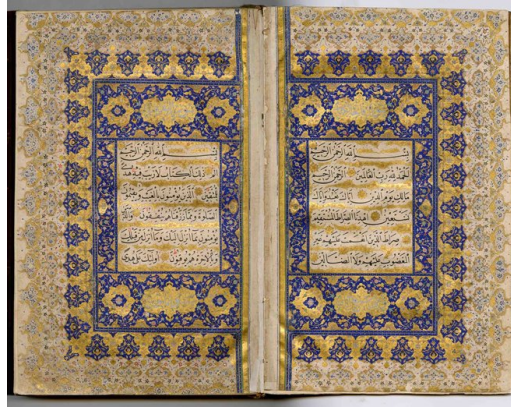 بسم الله الرحمن الرحيم
الحمد لله رب العالمين الرحمن الرحيم
مالك يوم الدين اياك نعبد واياك
نستعين اهدنا الصراط المستقيم
صراط الذين انعمت عليهم غير
المغضوب عليهم ولا الضالين
بسم الله الرحمن الرحيم
الم ذلك الكتاب لا ريب فيه هدى
للمتقين الذين يؤمنون بالغيب ويقيمون
الصلوة ومما رزقناهم ينفقون والذين
يؤمنون بما انزل اليك وما انزل من قبلك
وبالاخرة هم يوقنون اولئك على هدى